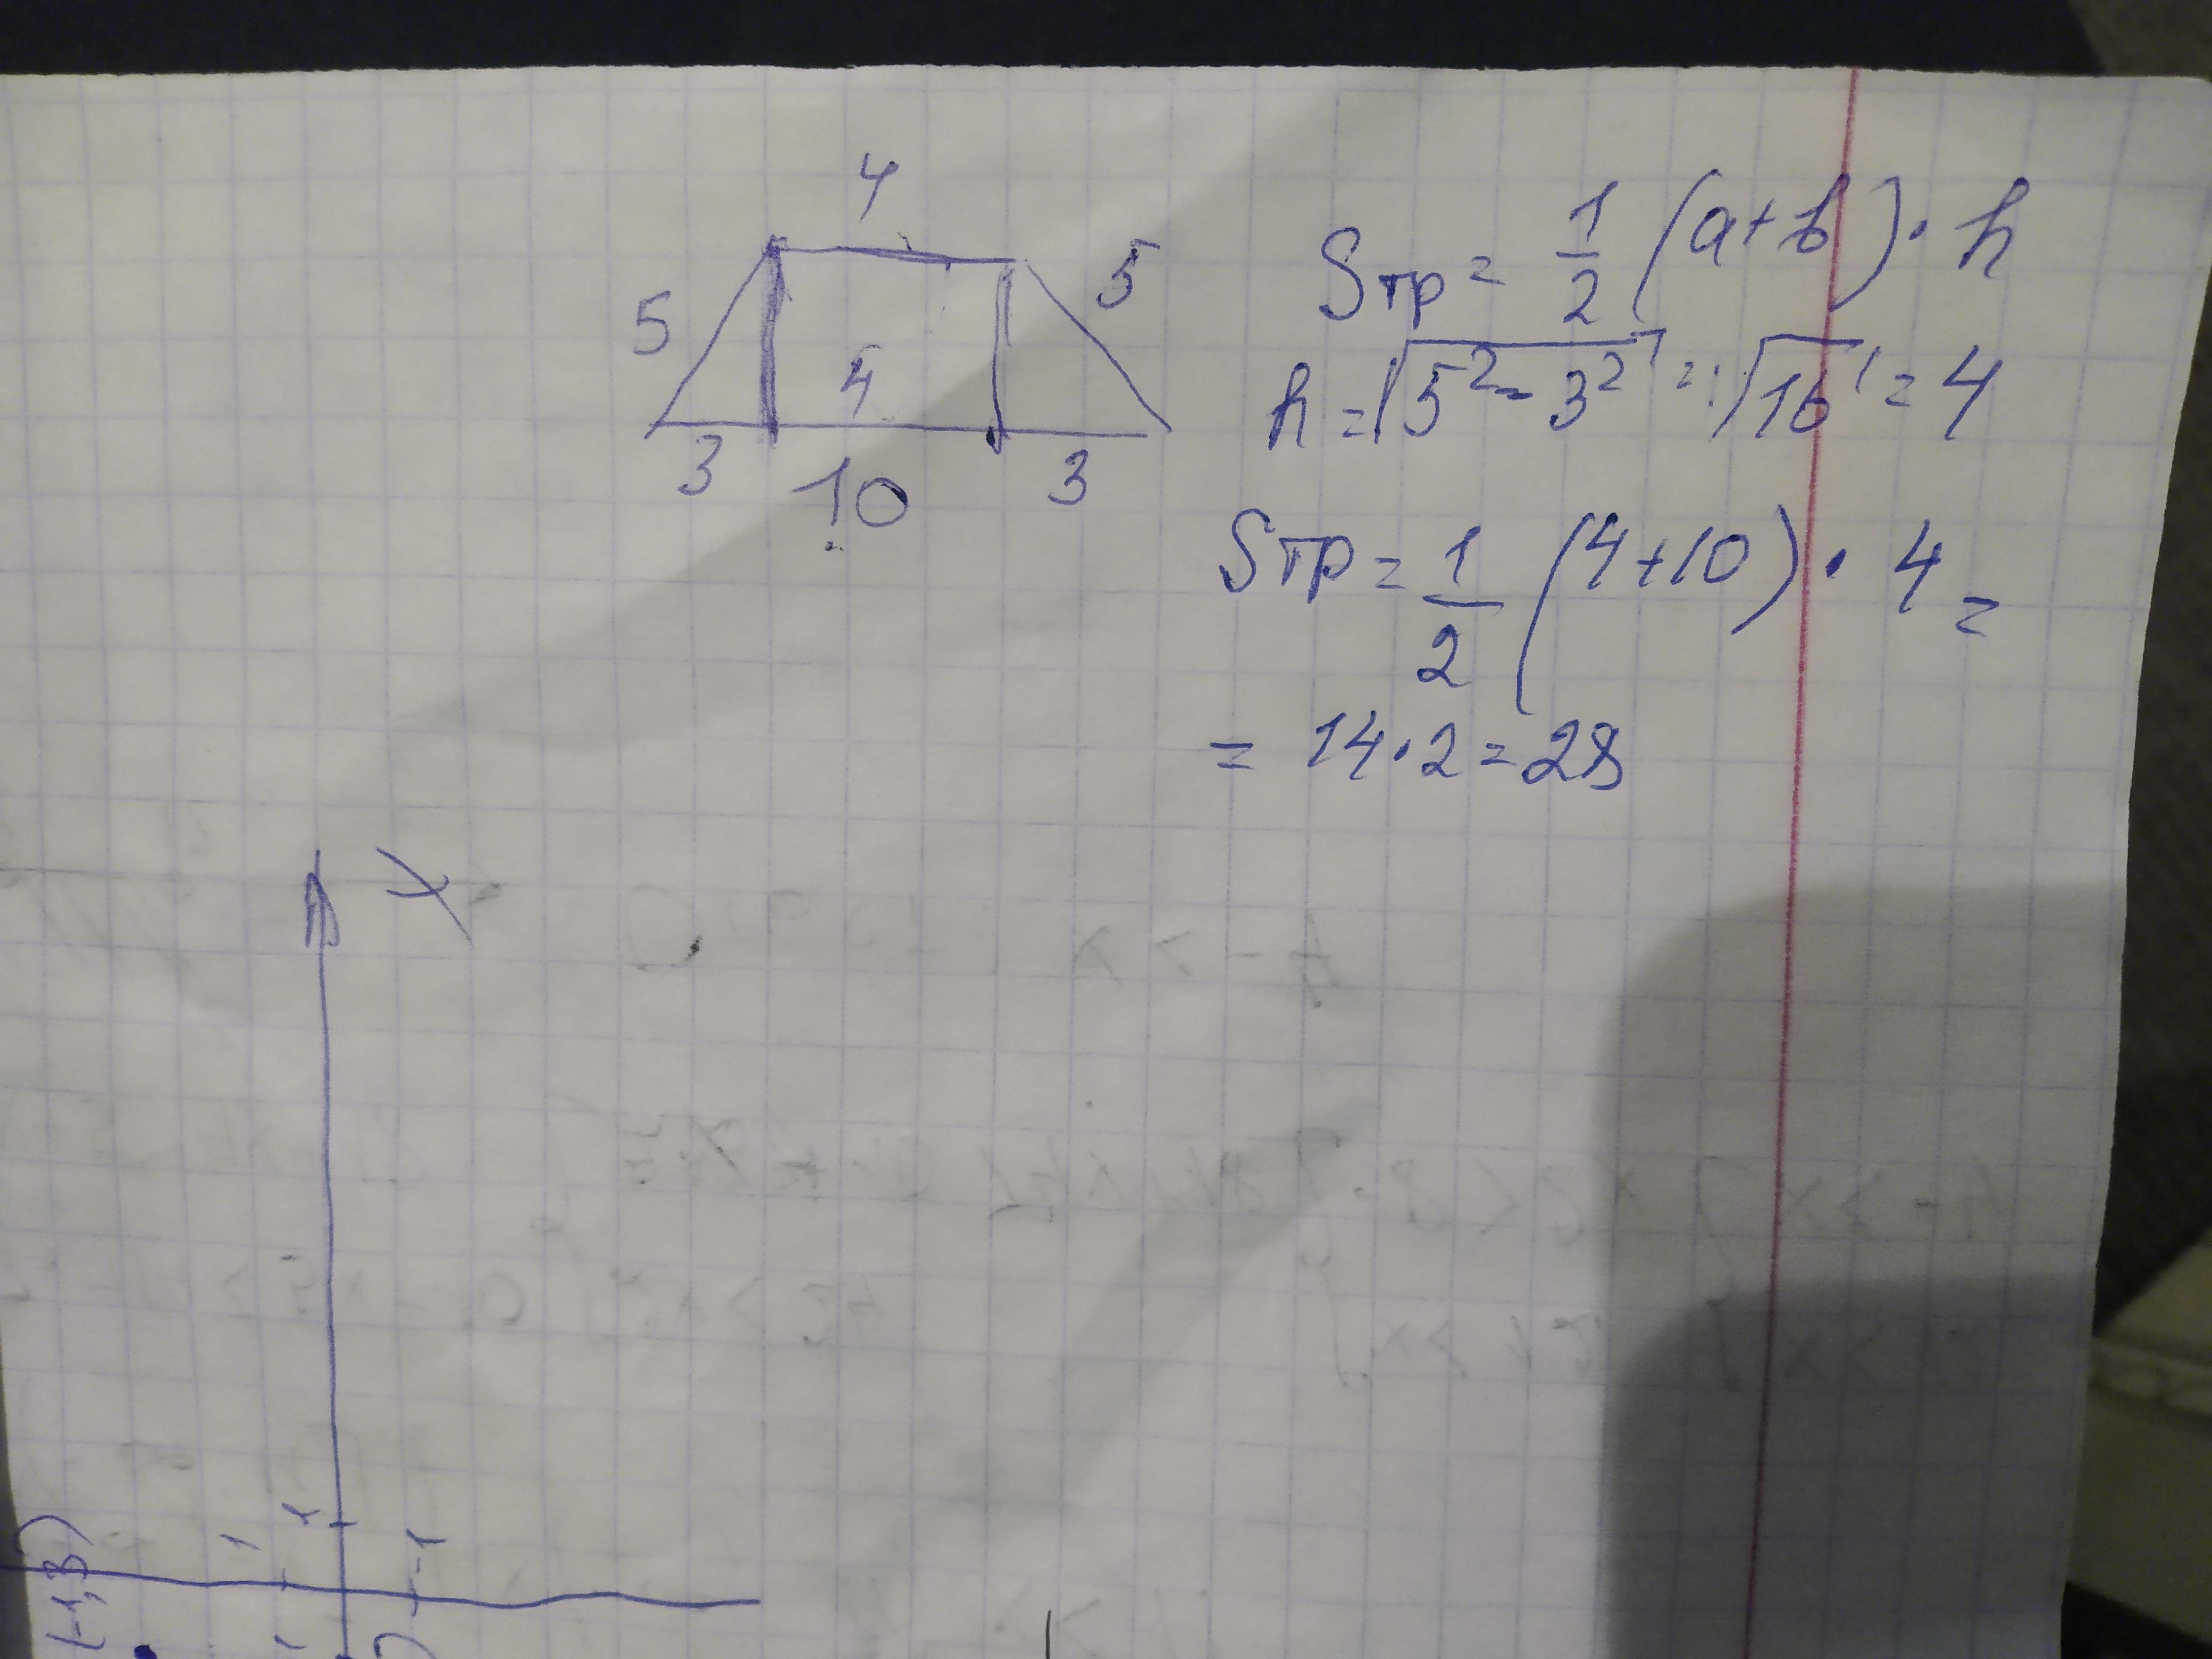 4
5
5
4
3
10
3
Sтр = 1/2 (a+b) · h
h = √5² - 3² = √16 = 4
Sтр = 1/2 (4+10) · 4 =
= 14 · 2 = 28
X
1
1
-1
(-1,8)